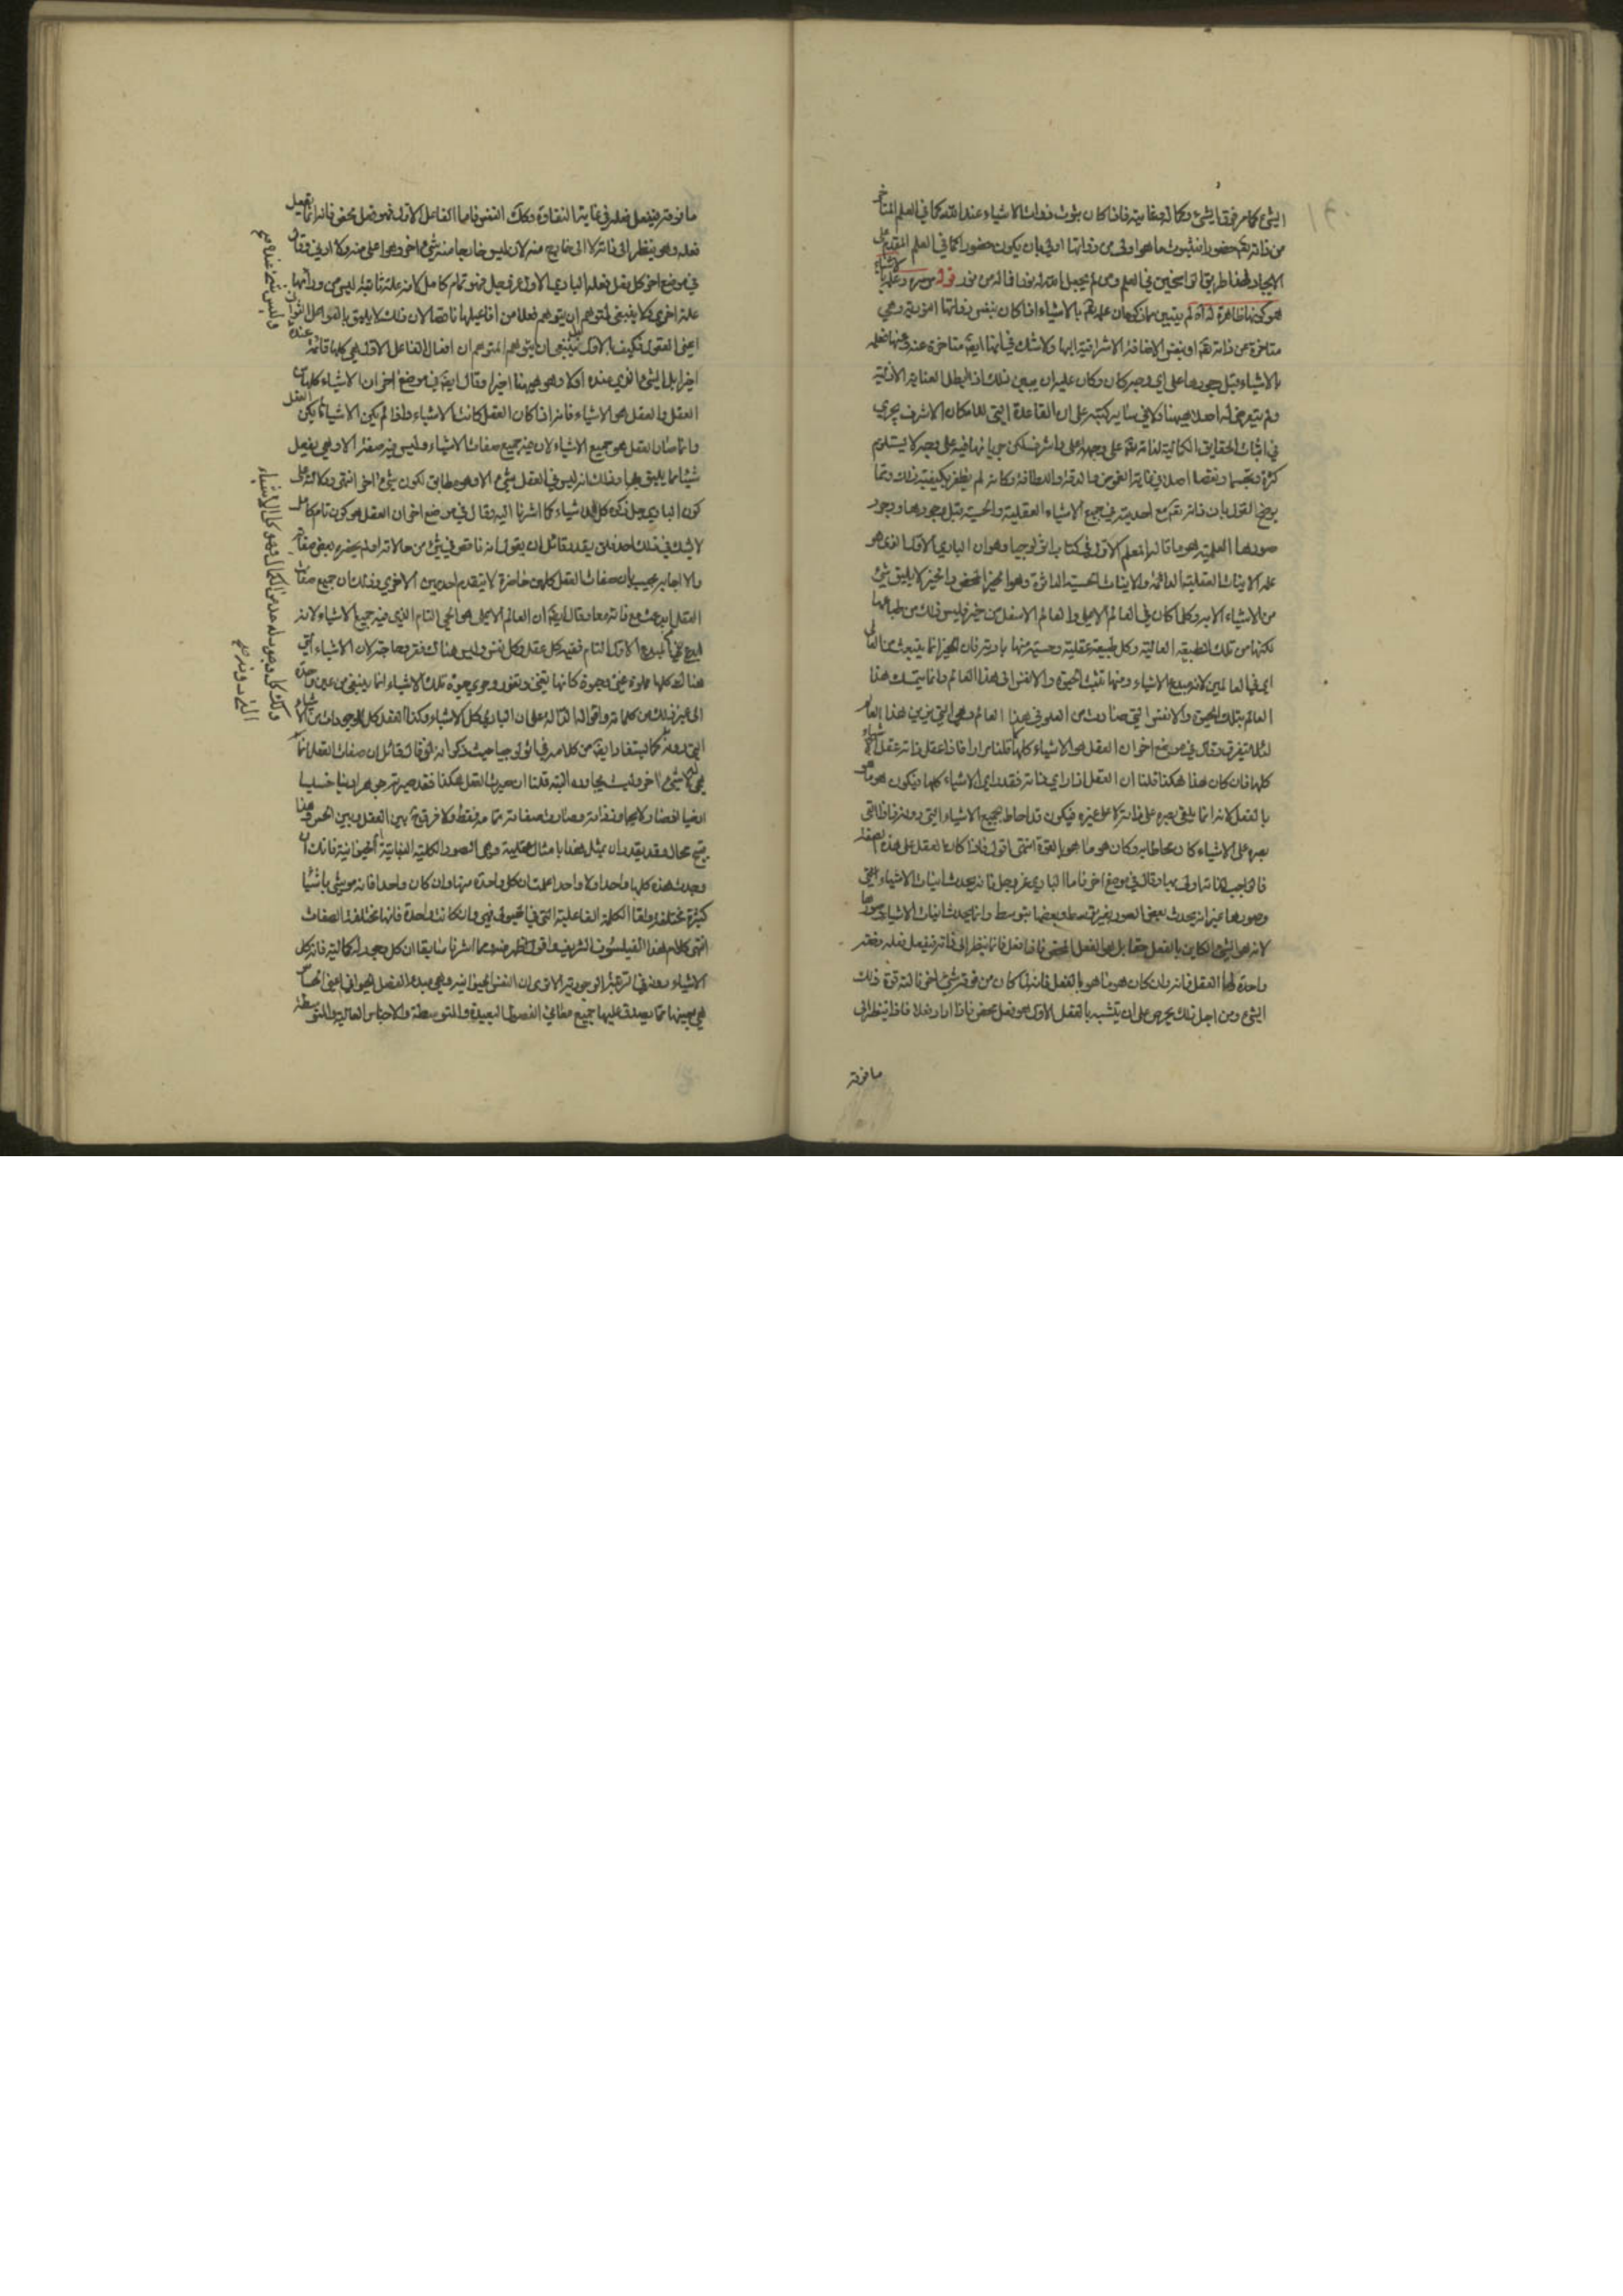 الشئ كامر فوق الشئ وكماله وغايته فاذا كان ثبوت ذوات الاشياء عند الله كما في العلم المتاخر
من ذاته تعه حضورا فثبوت ما هو اولى من ذواتها اولى بان يكون حضورا كما في العلم المقدم على
الايجاد فهذا طريقة الراسخين في العلم ومن لم يجعل الله له نورا فما له من نور قوله وعلمه بالاشياء
هو كونها ظاهرة له اه لم يتبين مما ذكره ان علمه تعه بالاشياء اذا كان بنفس ذواتها النورية وهي
متاخرة عن ذاته تعه او بنفس الاضافة الاشراقية اليها ولا شك في انها ايضا متاخرة عنه فعلمه
بالاشياء قبل وجودها على اي وجه كان وكان عليه ان يبين ذلك اذا ابطل العناية الازلية
ولم يتعرض له اصلا ههنا ولا في سائر كتبه على ان القاعدة التي للامكان الاشرف يجري
في اثبات الحقايق الكمالية لذاته تعه على وجه اعلى واشرف لكن جريانها فيه على وجه لا يستلزم
كثرة وتجسما ونقصا اصلا في غاية الغموض والدقة واللطافة وكانه لم يظفر بكيفية ذلك ومما
يوضح القول بان ذاته تعه مع احديته جميع الاشياء العقلية والحسية قبل وجودها ووجود
صورها العلمية هو ما قاله المعلم الاول في كتاب اثولوجيا وهو ان الباري الاول الذي هو
علة الانيات العقلية الدائمة والانيات الحسية الداثرة وهو الخير المحض والخير لا يليق بشئ
من الاشياء الا به وكل ما كان في العالم الاعلى والعالم الاسفل من خير فليس ذلك من طباعها
لكنها من تلك الطبيعة العالية وكل طبيعة عقلية وحسية منها بادية فان الخير انما ينبعث من العالي
في العالمين لانه مبدع الاشياء ومنها تنبث الحيوة والانفس الى هذا العالم وانما يتمسك هذا
العالم بتلك الحيوة والانفس التي صارت من العلو في هذا العالم وهي التي تزين هذا العالم
لئلا يتفرق وقال في موضع اخر ان العقل هو الاشياء كلها كما قلنا مرارا فاذا عقل ذاته عقل الاشياء
كلها فان كان هذا هكذا قلنا ان العقل اذا راى ذاته فقد راى الاشياء كلها فيكون هو ما هو
بالفعل لانه انما يلقي بصره على ذاته لا على غيره فيكون قد احاط بجميع الاشياء التي دونه فاذا القى
بصره على الاشياء كان محاطا به وكان هو ما هو بالقوة انتهى اقول فاذا كان العقل على هذه الصفة
فالواجب اولى بها وقال في موضع اخر فاما الباري عز وجل فانه يحدث انيات الاشياء
وصورها غير انه يحدث بعض الصور بغير توسط وبعضها بتوسط وانما يحدث انيات الاشياء وصورها
لانه هو الشئ الكاين بالفعل حقا بل هو الفعل المحض فاذا فعل فانما ينظر الى ذاته فيفعل فعله دفعة
واحدة فاما العقل فانه وان كان هو ما هو بالفعل فانه لما كان من فوقه شئ اخر نالته قوة ذلك
الشئ ومن اجل ذلك يحرص على ان يتشبه بالفعل الاول الذي هو فعل محض فاذا اراد فعلا فانما ينظر الى
ما فوقه
ما فوقه فيفعل فعله في غاية النقاوة وكذلك النفس فاما الفاعل الاول فهو فعل محض فانه انما يفعل
فعله وهو ينظر الى ذاته لا الى خارج منه لانه ليس خارجا منه شئ اخر هو اعلى منه ولا ادنى وقال
في موضع اخر كل فعل فعله الباري الاول عز وجل فهو تام كامل لانه علة تامة ليس من ورائها
علة اخرى ولا ينبغي لمتوهم ان يتوهم فعلا من افاعيلها ناقصا لان ذلك لا يليق بالفواعل الثواني
اعني العقول فكيف الاول بل ينبغي ان يتوهم المتوهم ان افعال الفاعل الاول هي كلها قائمة عنده
اخيرا بل الشئ الذي عنده اولا وهو ههنا اخيرا وقال ايضا في موضع اخر ان الاشياء كلها من
العقل والعقل هو الاشياء فانه اذا كان العقل كانت الاشياء واذا لم يكن الاشياء لم يكن العقل
وانما صار العقل هو جميع الاشياء لان فيه جميع صفات الاشياء وليس فيه صفة الا وهي يفعل
شيئا مما يليق بها وذلك انه ليس في العقل شئ الا وهو مطابق لكون شئ اخر انتهى ودلالته على
كون الباري جل ذكره كل الاشياء كما اشرنا اليه وقال في موضع اخر ان العقل هو كون تام كامل
لا شك في ذلك احد فلن يقدر قائل ان يقول انه ناقص في شئ من حالاته ولم يحضره بعض صفاته
والا اجابه مجيب بان صفات العقل كلهن حاضرة لا يتقدم احديهن الاخرى وذلك ان جميع صفات
العقل ابدعت مع ذاته معا وقال ايضا ان العالم الاعلى هو الحي التام الذي فيه جميع الاشياء لانه
ابدع من المبدع الاول التام ففيه كل عقل وكل نفس وليس هناك فقر ولا حاجة لان الاشياء التي
هناك كلها مملوة غنى وحيوة كانها تغلي وتفور وجري حيوة تلك الاشياء انما ينبع من عين واحدة
الى غير ذلك من كلماته واقواله الدالة على ان الباري كل الاشياء وكذا العقل كل الموجودات من الاشياء
التي دونه كما يستفاد ايضا من كلامه في اثولوجيا حيث ذكر انه لو قال قائل ان صفات العقل انما
هي له لا لشئ اخر وليست يجاوزه البتة قلنا ان صيرت العقل هكذا فقد صيرته جوهرا دنيا خسيسا
ارضيا اذ صار لا يجاوز ذاته وصارت صفاته تمامه فقط ولا فرق بين العقل وبين الحس وهذا
قبيح محال وقد يقدر ان يمثل هذا بامثال عقلية وهي الصور الكلية النباتية الحيوانية فانك ان
وجدت هذه كلها واحدا ولا واحدا علمت ان كل واحدة منها وان كان واحدا فانه موشى باشياء
كثيرة مختلفة واما الكلمة الفاعلية التي في الهيولى فهي وان كانت واحدة فانها مختلفة الصفات
انتهى كلام هذا الفيلسوف الشريف واقول ظهر منه مما اشرنا سابقا ان كل وجود له كمالية فانه كل
الاشياء دونه في المرتبة الوجودية الا ترى ان النفس الحيوانية وهي مبدء الفصل الحيواني اعني الحساس
هي بعينها مما يصدق عليها جميع معاني الفصول البعيدة والمتوسطة والاجناس العالية والمتوسطة